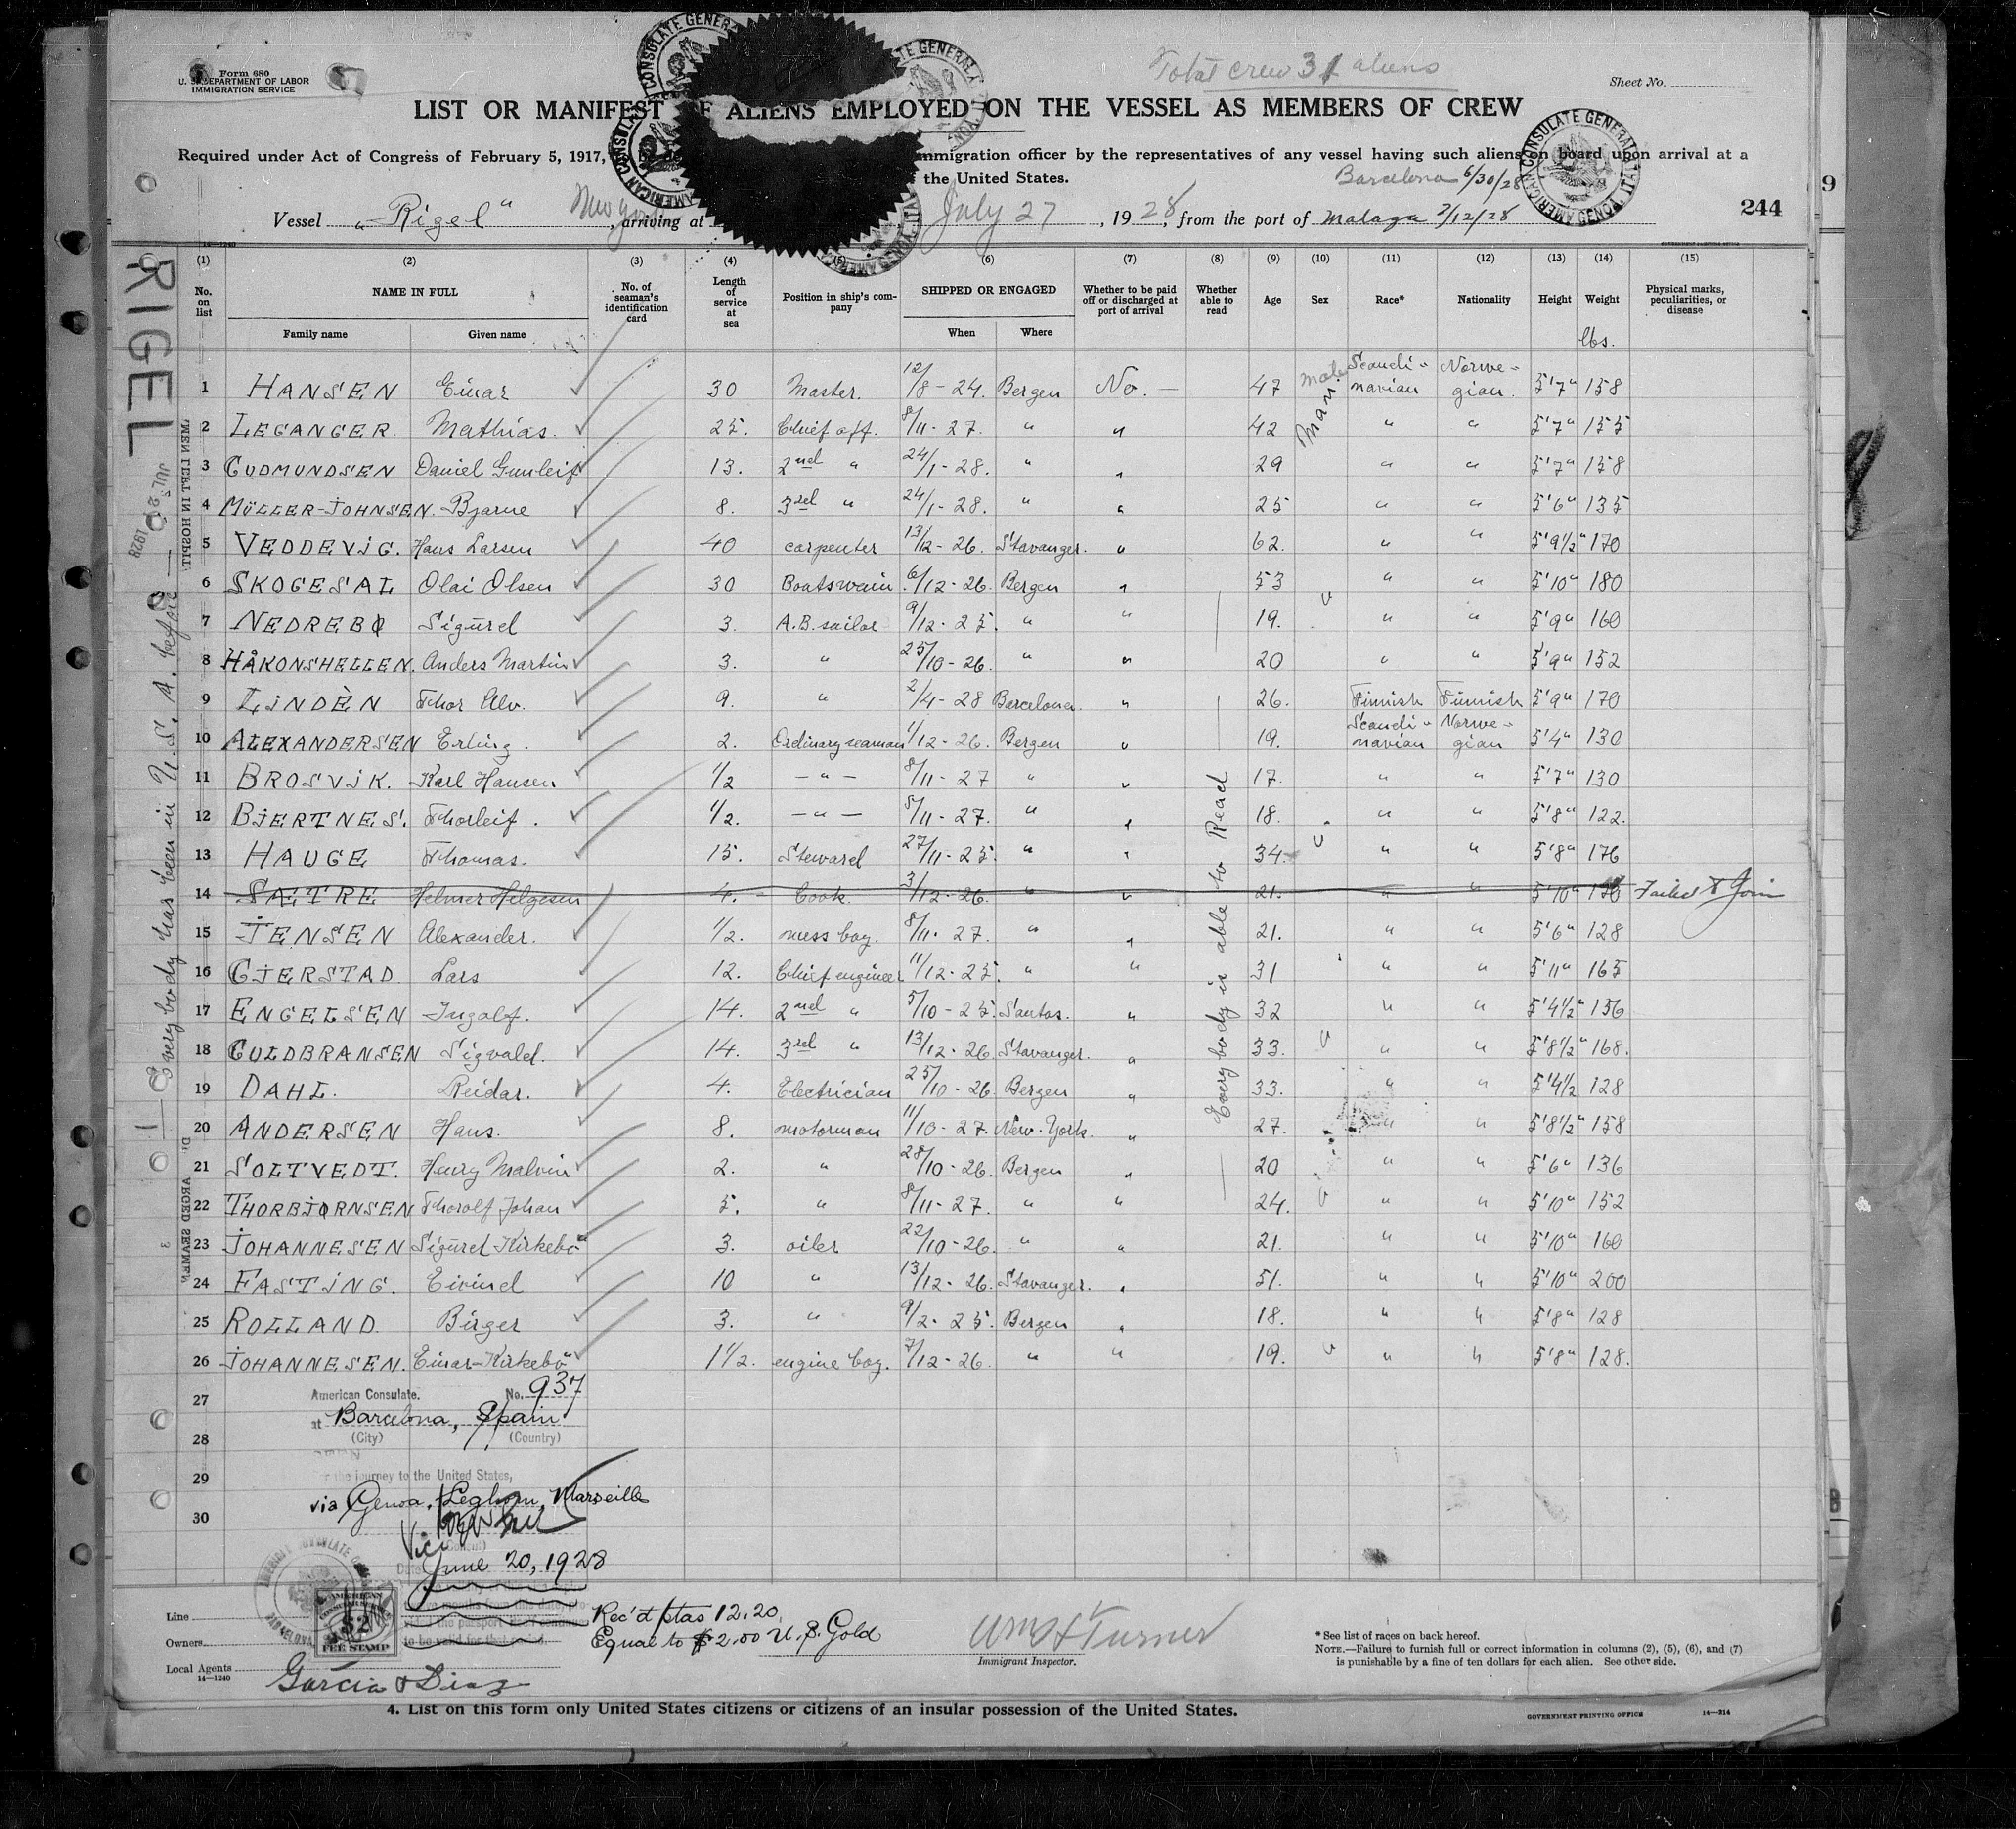 Form 680
U. S. DEPARTMENT OF LABOR
IMMIGRATION SERVICE
Total crew 31 aliens
Sheet No.
LIST OR MANIFEST OF ALIENS EMPLOYED ON THE VESSEL AS MEMBERS OF CREW
Required under Act of Congress of February 5, 1917, immigration officer by the representatives of any vessel having such aliens on board upon arrival at a
the United States.
Barcelona 6/30/28
Vessel "Rigel" New York, arriving at July 27, 1928, from the port of Malaga 7/12/28
244
9
14—1240
(1) (2) (3) (4) (6) (7) (8) (9) (10) (11) (12) (13) (14) (15)
No. on list NAME IN FULL No. of seaman's identification card Length of service at sea Position in ship's company SHIPPED OR ENGAGED Whether to be paid off or discharged at port of arrival Whether able to read Age Sex Race* Nationality Height Weight Physical marks, peculiarities, or disease
Family name Given name When Where lbs.
1 HANSEN Einar 30 Master. 12/8-24. Bergen No. — 47 male Scandinavian Norwegian. 5'7" 158
2 LEGANGER. Mathias. 25. Chief off. 8/11-27. " " 42 " " 5'7" 155
3 GUDMUNDSEN Daniel Gunleif 13. 2nd " 24/1-28. " " 29 " " 5'7" 158
4 MÜLLER-JOHNSEN. Bjarne 8. 3rd " 24/1-28. " " 25 " " 5'6" 135
5 VEDDEVIG. Hans Larsen 40 carpenter 13/12-26. Stavanger. " 62. " " 5'9 1/2" 170
6 SKOGESAL Olai Olsen 30 Boatswain. 6/12-26. Bergen " 53 " " 5'10" 180
7 NEDREBØ Sigurd 3. A.B. sailor 9/12-25. " " 19. " " 5'9" 160
8 HÅKONSHELLEN. Anders Martin 3. " 25/10-26. " " 20 " " 5'9" 152
9 LINDÈN Thor Alv. 9. " 2/4-28 Barcelona. " 26. Finnish Finnish 5'9" 170
10 ALEXANDERSEN Erling. 2. Ordinary seaman 1/12-26. Bergen " 19. Scandinavian Norwegian 5'4" 130
11 BROSVIK. Karl Hansen 1/2 — " — 8/11-27 " " 17. " " 5'7" 130
12 BJERTNES. Thorleif. 1/2. — " — 5/11-27. " " 18. " " 5'8" 122.
13 HAUGE Thomas. 15. Steward 27/11-25. " " 34. " " 5'8" 176
14 SAETRE Helmer Helgesen 4. Cook. 3/12-26. " " 21. " " 5'10" Failed to Join
15 JENSEN Alexander. 1/2. mess boy. 8/11-27. " " 21. " " 5'6" 128
16 GJERSTAD. Lars 12. Chief engineer 11/12-25. " " 31 " " 5'11" 165
17 ENGELSEN Ingolf. 14. 2nd " 5/10-25. Santos. " 32 " " 5'4 1/2" 156
18 GULDBRANSEN Sigvald. 14. 3rd " 13/12-26 Stavanger. " 33. " " 5'8 1/2" 168.
19 DAHL. Reidar. 4. Electrician 25/10-26 Bergen " 33. " " 5'4 1/2 128
20 ANDERSEN Hans. 8. motorman 11/10-27. New-York. " 27. " " 5'8 1/2" 158
21 SOLTVEDT. Henry Malvin 2. " 28/10-26. Bergen " 20 " " 5'6" 136
22 THORBJØRNSEN Thorolf Johan 5. " 8/11-27. " " 24. " " 5'10" 152
23 JOHANNESEN Sigurd Kirkebö 3. oiler 22/10-26. " " 21. " " 5'10" 160
24 FASTING. Eivind 10 " 13/12-26. Stavanger. " 51. " " 5'10" 200
25 ROLLAND. Birger 3. " 9/2-25. Bergen " 18. " " 5'8" 128
26 JOHANNESEN. Einar-Kirkebö 1 1/2. engine boy. 7/12-26. " " 19. " " 5'8" 128.
27
28
29
30
Everybody is able to Read
RIGEL
1 — Everybody has been in U.S.A. before —
American Consulate. No. 937
at Barcelona, Spain
(City) (Country)
the journey to the United States,
via Genoa, Leghorn, Marseille
Vice
(Consul)
June 20, 1928
AMERICAN
$2
FEE STAMP
Line
Owners
Local Agents
14—1240
Garcia & Diaz
Rec'd ptas 12.20
Equal to $2.00 U.S. Gold
Wm H Turner
Immigrant Inspector.
* See list of races on back hereof.
NOTE.—Failure to furnish full or correct information in columns (2), (5), (6), and (7)
is punishable by a fine of ten dollars for each alien. See other side.
4. List on this form only United States citizens or citizens of an insular possession of the United States.
GOVERNMENT PRINTING OFFICE 14—214